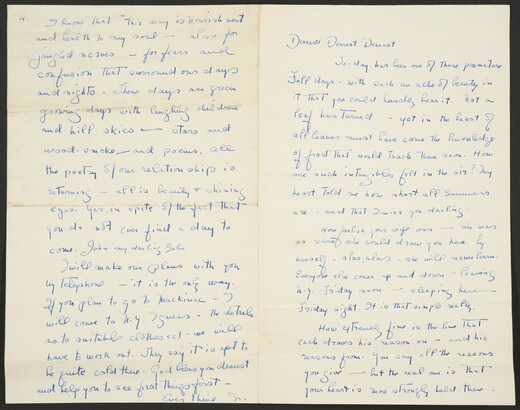 4.
I know that this way is nourishment
and health to my soul — also for
jangled nerves — for fears and
confusion that surround our days
and nights. These days are green
growing days with laughing children
and hill skies — stars and
wood-smoke — and poems. All
the poetry of our relationship is
returning — all is beauty & shining
eyes. Yes, in spite of the fact that
you do not ever find a day to
come. John my darling John
I will make our plans with you
by telephone — it is the only way.
If you plan to go to Mackinac — I
will come to N.Y. I guess. The details
as to suitable clothes ect. we will
have to work out. They say it is apt to
be quite cold there. God bless you dearest
and help you to see first things first —
Ever thine
Dearest Dearest Dearest
To-day has been one of those premature
Fall days. with such an ache of beauty in
it that you could hardly bear it. Not a
leaf has turned — yet in the heart of
all leaves must have come the knowledge
of frost that would touch them soon. How
are such intangibles felt in the air? My
heart told me how short all summers
are — and that I miss you darling.
How foolish your wife was — she was
so sure she could draw you here by
herself — alas, alas — she will never learn.
Everyone else comes up and down — leaving
N.Y. Friday noon — sleeping here
Friday night. It is that simple really.
How extremely fine is the line that
each draws his reason on — and his
reasons from. You say all the reasons
you give — but the real one is that
your heart is more strongly held there